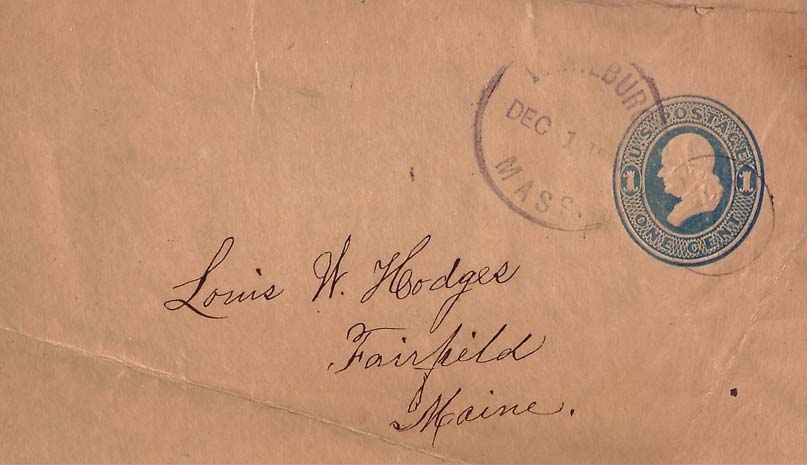 DEC 1
MASS.
U.S. POSTAGE
1 1
ONE ONE
Louis W. Hodges
Fairfield
Maine.